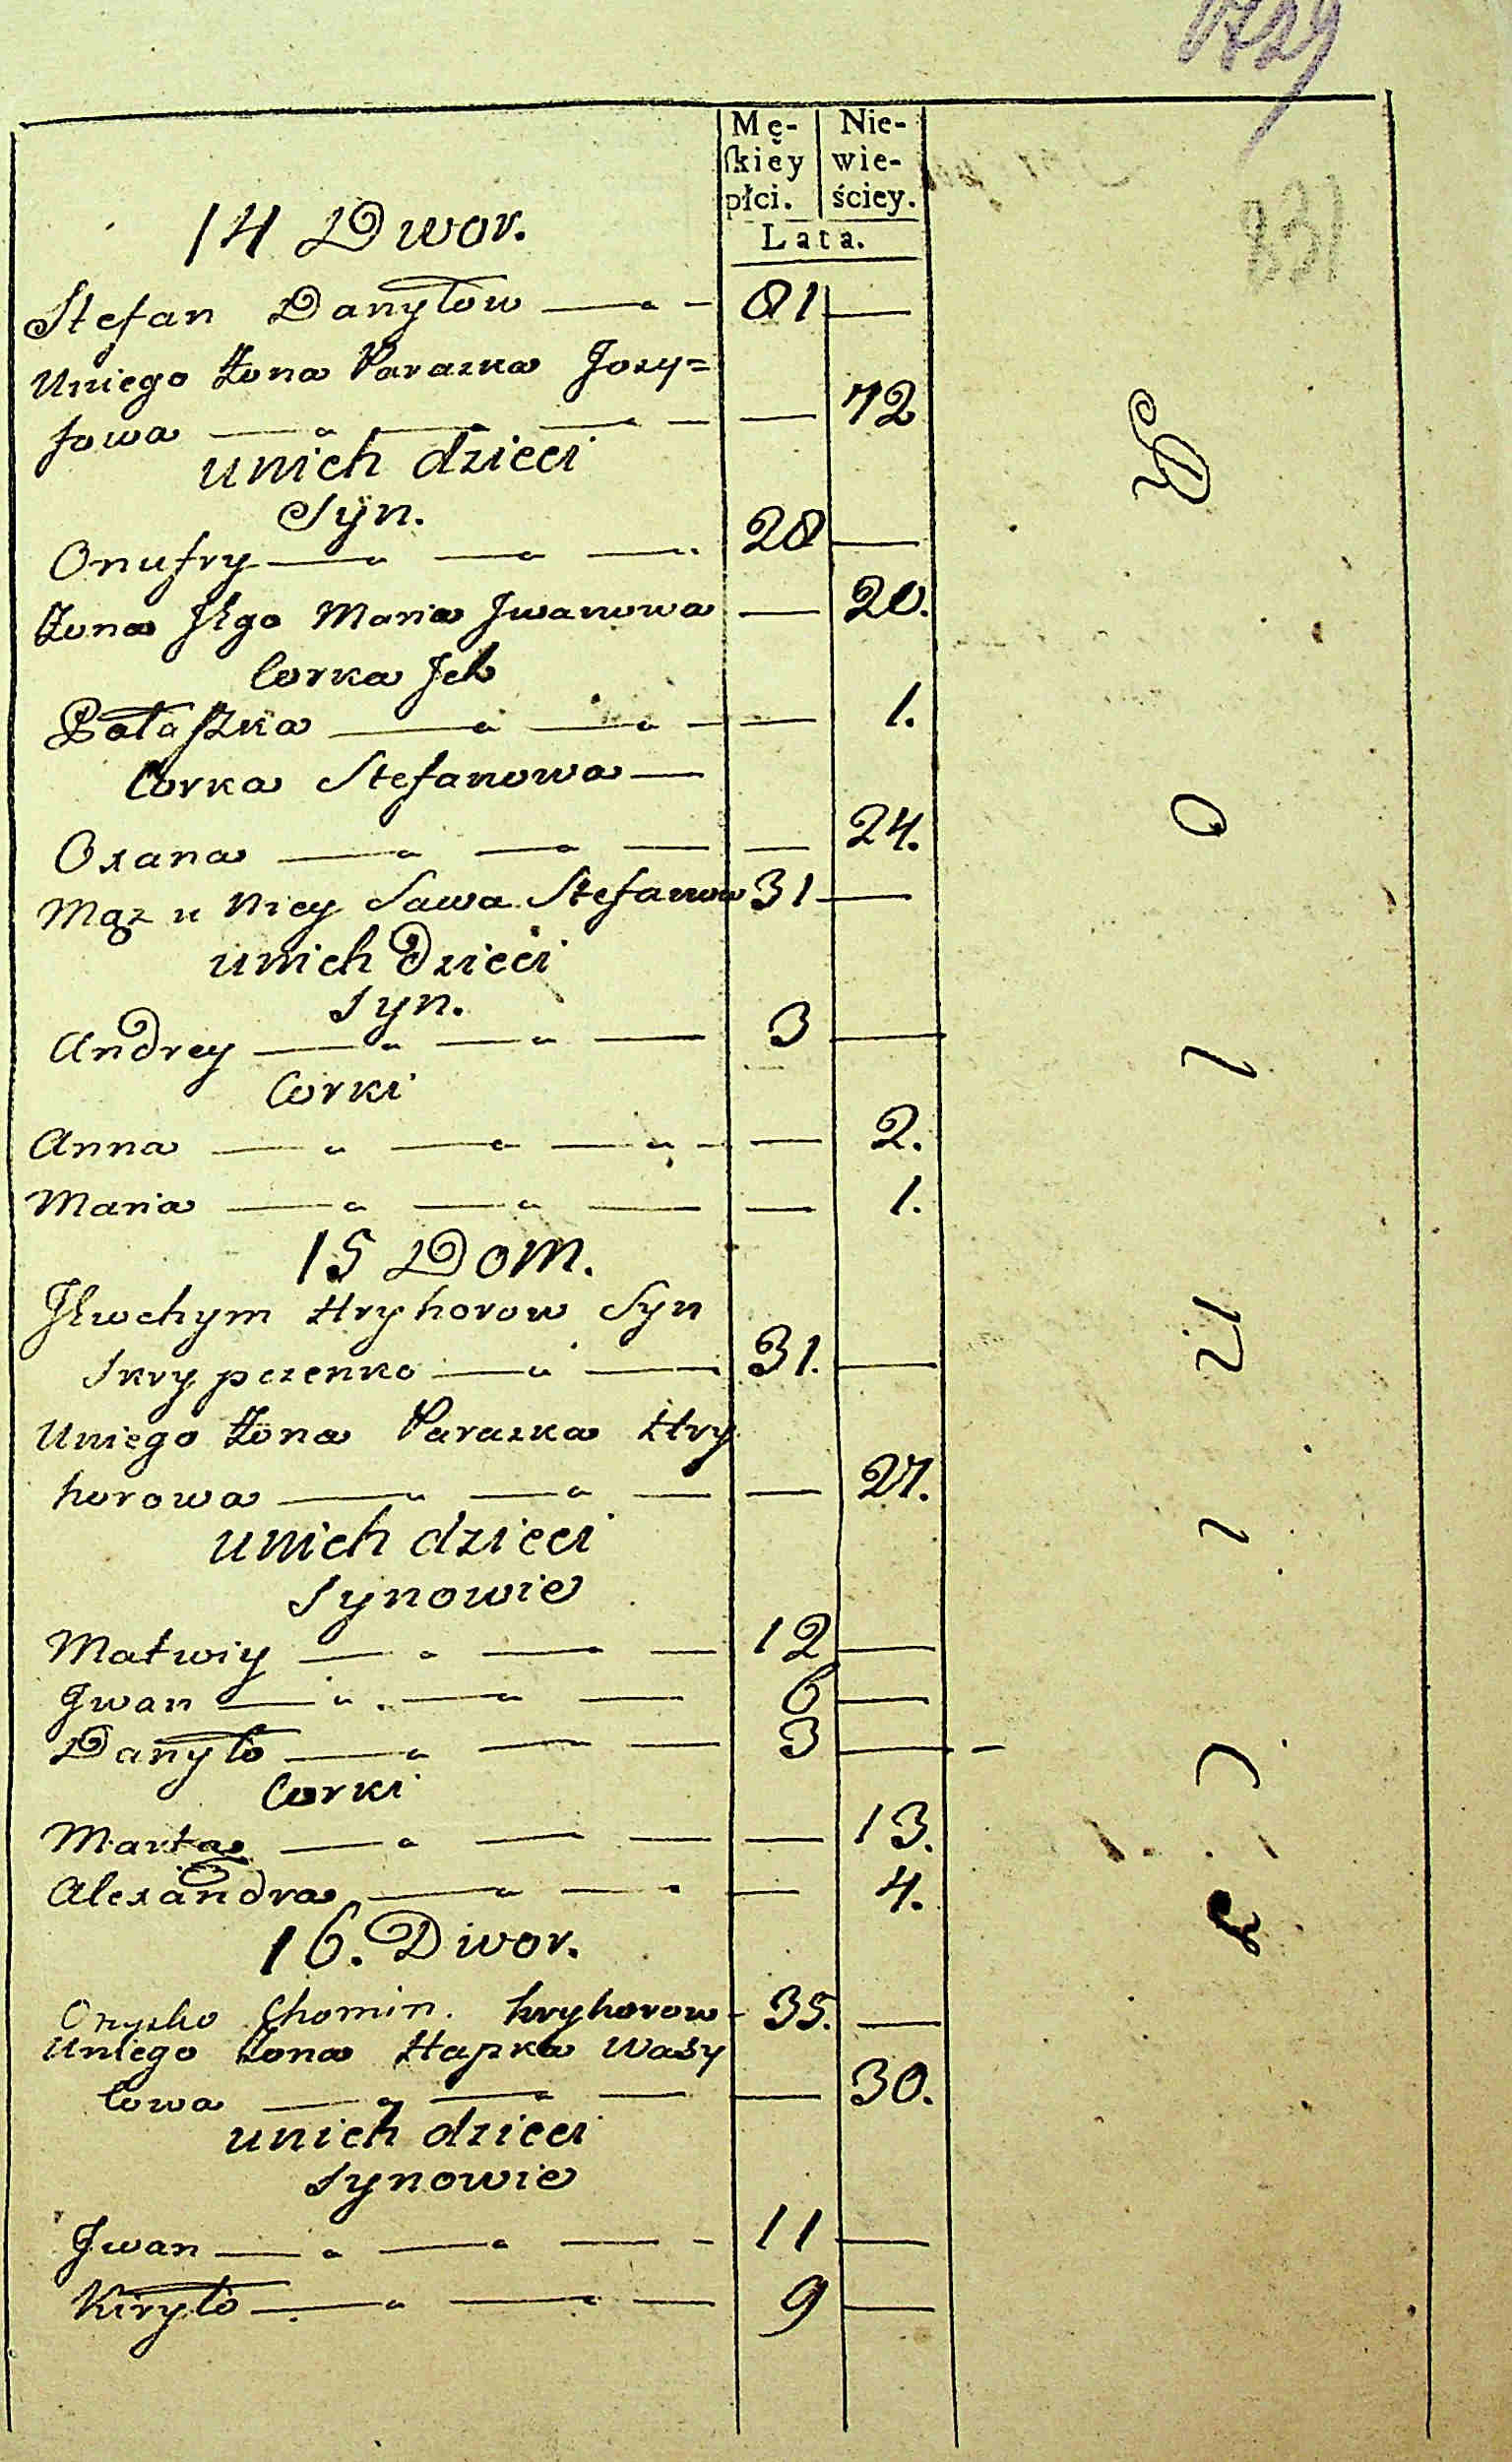 Mę-
skiey
płci.
Nie-
wie-
ściey.
Lata.
831
14 Dwor.
Stefan Danyłow 81
Uniego Żona Paraska Jozy=
fowa 72
unich dzieci
Syn.
Onufry 28
Żona Jego Maria Jwanowa 20.
Corka Jch
Pałaszka 1.
Corka Stefanowa
Oxana 24.
Mąz u Niey Sawa Stefanow 31
unich Dzieci
Syn.
Andrey 3
Corki
Anna 2.
Maria 1.
15 Dom.
Jewchym Hryhorow Syn
Skrypczenko 31.
Uniego Żona Paraska Hry
horowa 27.
unich dzieci
Synowie
Matwiy 12
Jwan 6
Danyło 3
Corki
Marta 13.
Alexandra 4.
16. Dwor.
Onyszko Chomin. hryhorow 35.
Uniego Żona Hapka Wasy
lowa 30.
unich dzieci
Synowie
Jwan 11
Kiryło 9